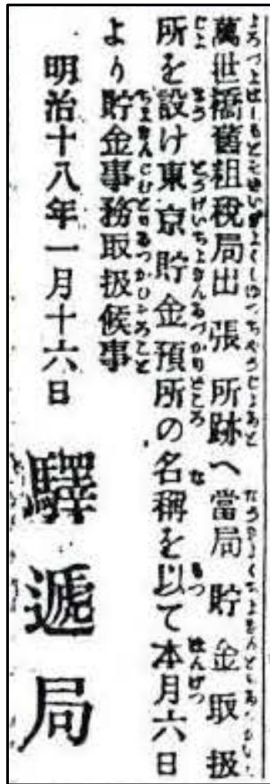 萬世橋舊租稅局出張所跡へ當局貯金取扱
所を設け東京貯金預所の名稱を以て本月六日
より貯金事務取扱候事
明治十八年一月十六日 驛遞局